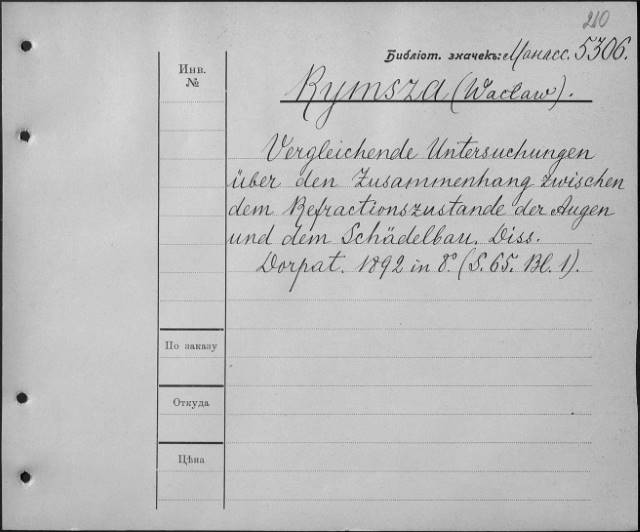 210
Библіот. значекъ: Манасс. 5306.
Инв.
№
Rymsza (Wacław).
Vergleichende Untersuchungen
über den Zusammenhang zwischen
dem Refractionszustande der Augen
und dem Schädelbau. Diss.
Dorpat. 1892 in 8°. (S. 65. Bl. 1).
По заказу
Откуда
Цѣна